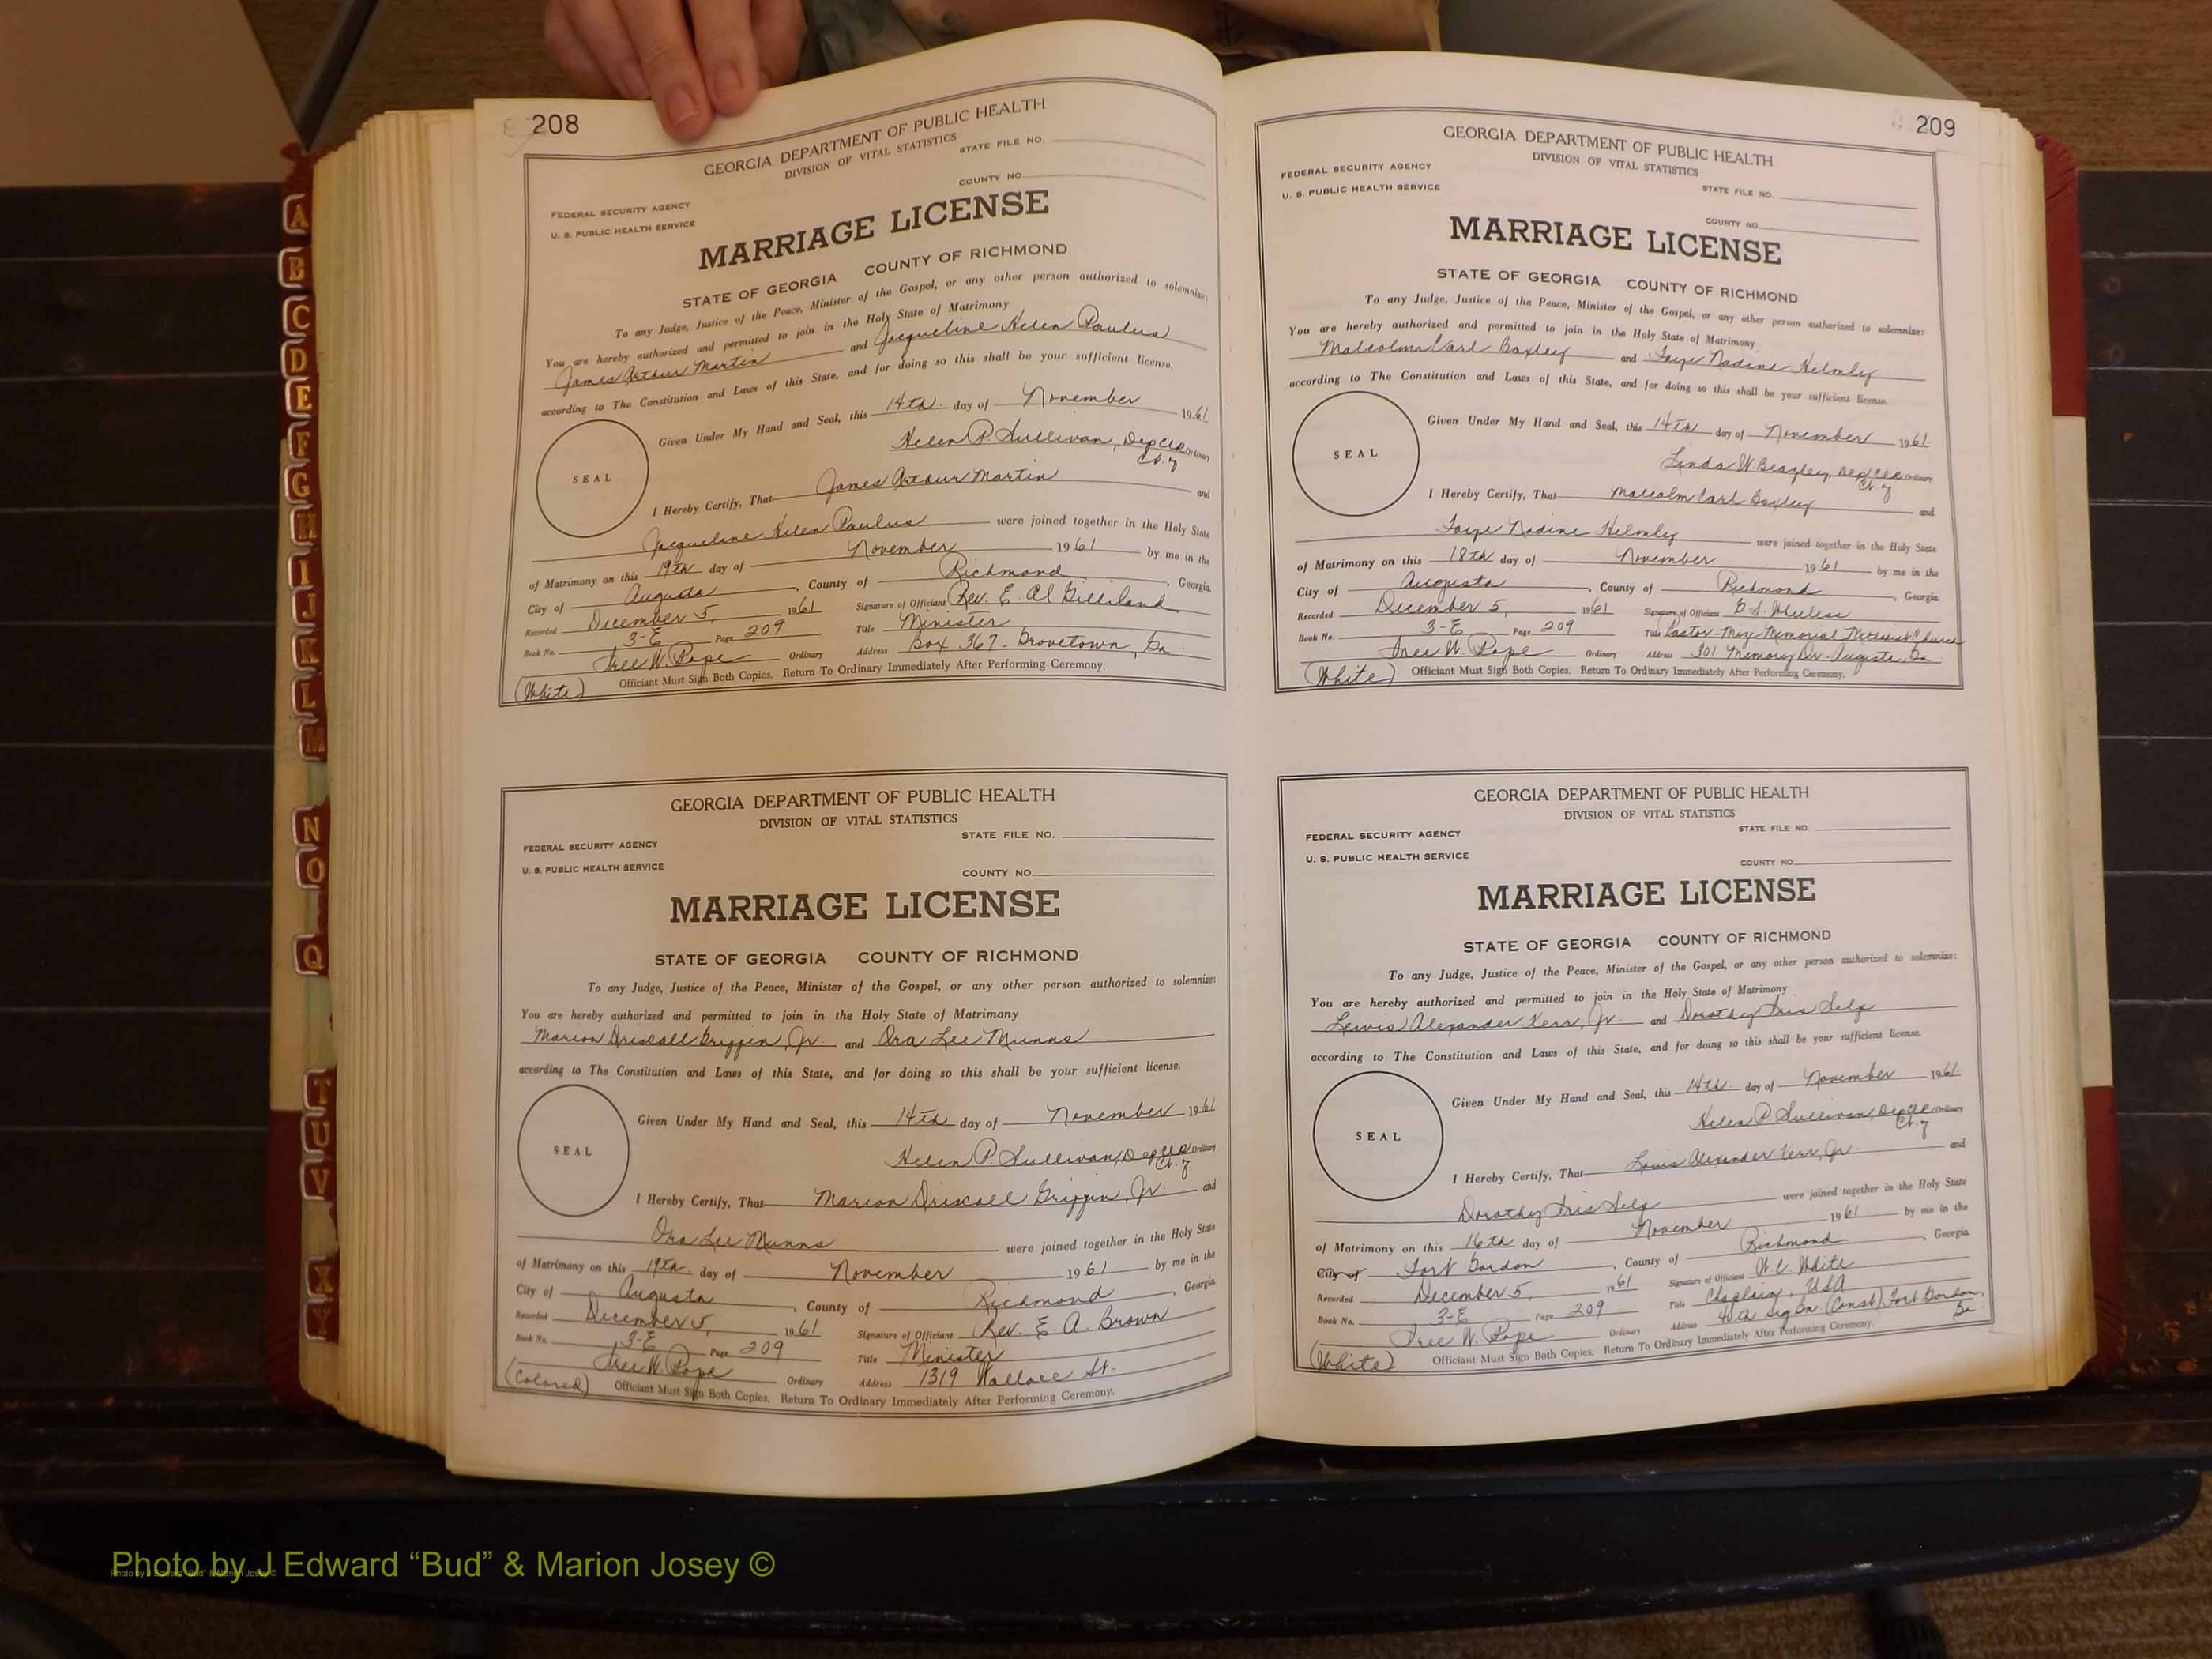 208
GEORGIA DEPARTMENT OF PUBLIC HEALTH
DIVISION OF VITAL STATISTICS
STATE FILE NO.
FEDERAL SECURITY AGENCY
COUNTY NO.
U. S. PUBLIC HEALTH SERVICE
MARRIAGE LICENSE
STATE OF GEORGIA COUNTY OF RICHMOND
To any Judge, Justice of the Peace, Minister of the Gospel, or any other person authorized to solemnize:
You are hereby authorized and permitted to join in the Holy State of Matrimony
James Arthur Martin and Jacqueline Helen Paulus
according to The Constitution and Laws of this State, and for doing so this shall be your sufficient license.
Given Under My Hand and Seal, this 14th day of November 1961
SEAL
Helen P. Sullivan, Dep Clk Ordinary
Ct. of
I Hereby Certify, That James Arthur Martin and
Jacqueline Helen Paulus were joined together in the Holy State
of Matrimony on this 19th day of November 1961 by me in the
City of Augusta, County of Richmond, Georgia
Recorded December 5, 1961 Signature of Officiant Rev. E. Al Gilliland
Book No. 3-E Page 209 Title Minister
Free W. Pope Ordinary Address Box 367 - Grovetown, Ga
(White) Officiant Must Sign Both Copies. Return To Ordinary Immediately After Performing Ceremony.
GEORGIA DEPARTMENT OF PUBLIC HEALTH
DIVISION OF VITAL STATISTICS
STATE FILE NO.
FEDERAL SECURITY AGENCY
U. S. PUBLIC HEALTH SERVICE
COUNTY NO.
MARRIAGE LICENSE
STATE OF GEORGIA COUNTY OF RICHMOND
To any Judge, Justice of the Peace, Minister of the Gospel, or any other person authorized to solemnize:
You are hereby authorized and permitted to join in the Holy State of Matrimony
Marion Driscall Griffin, Jr. and Ora Lee Munns
according to The Constitution and Laws of this State, and for doing so this shall be your sufficient license.
Given Under My Hand and Seal, this 14th day of November 1961
SEAL
Helen P. Sullivan, Dep Clk Ordinary
Ct. of
I Hereby Certify, That Marion Driscall Griffin, Jr. and
Ora Lee Munns were joined together in the Holy State
of Matrimony on this 19th day of November 1961 by me in the
City of Augusta, County of Richmond, Georgia
Recorded December 5, 1961 Signature of Officiant Rev. E. A. Brown
Book No. 3-E Page 209 Title Minister
Free W. Pope Ordinary Address 1319 Wallace St.
(Colored) Officiant Must Sign Both Copies. Return To Ordinary Immediately After Performing Ceremony.
209
GEORGIA DEPARTMENT OF PUBLIC HEALTH
DIVISION OF VITAL STATISTICS
FEDERAL SECURITY AGENCY
U. S. PUBLIC HEALTH SERVICE
STATE FILE NO.
COUNTY NO.
MARRIAGE LICENSE
STATE OF GEORGIA COUNTY OF RICHMOND
To any Judge, Justice of the Peace, Minister of the Gospel, or any other person authorized to solemnize:
You are hereby authorized and permitted to join in the Holy State of Matrimony
Malcolm Carl Baxley and Faye Nadine Helmly
according to The Constitution and Laws of this State, and for doing so this shall be your sufficient license.
Given Under My Hand and Seal, this 14th day of November 1961
SEAL
Linda W. Beazley, Dep Clk Ordinary
Ct. of
I Hereby Certify, That Malcolm Carl Baxley and
Faye Nadine Helmly were joined together in the Holy State
of Matrimony on this 18th day of November 1961 by me in the
City of Augusta, County of Richmond, Georgia
Recorded December 5, 1961 Signature of Officiant G. S. Wheless
Book No. 3-E Page 209 Title Pastor - Mize Memorial Methodist Church
Free W. Pope Ordinary Address 301 Memory Dr. Augusta, Ga
(White) Officiant Must Sign Both Copies. Return To Ordinary Immediately After Performing Ceremony.
GEORGIA DEPARTMENT OF PUBLIC HEALTH
DIVISION OF VITAL STATISTICS
STATE FILE NO.
FEDERAL SECURITY AGENCY
U. S. PUBLIC HEALTH SERVICE
COUNTY NO.
MARRIAGE LICENSE
STATE OF GEORGIA COUNTY OF RICHMOND
To any Judge, Justice of the Peace, Minister of the Gospel, or any other person authorized to solemnize:
You are hereby authorized and permitted to join in the Holy State of Matrimony
Lewis Alexander Kerr, Jr. and Dorothy Iris Self
according to The Constitution and Laws of this State, and for doing so this shall be your sufficient license.
Given Under My Hand and Seal, this 14th day of November 1961
SEAL
Helen P. Sullivan, Dep Clk Ordinary
Ct. of
I Hereby Certify, That Lewis Alexander Kerr, Jr. and
Dorothy Iris Self were joined together in the Holy State
of Matrimony on this 16th day of November 1961 by me in the
City of Fort Gordon, County of Richmond, Georgia
Recorded December 5, 1961 Signature of Officiant W. C. White
Book No. 3-E Page 209 Title Chaplain, USA
Free W. Pope Ordinary Address Sig Bn (Const) Fort Gordon, Ga
(White) Officiant Must Sign Both Copies. Return To Ordinary Immediately After Performing Ceremony.
A
B
C
D
E
F
G
H
I
J
K
L
M
N
O
Q
T
U
V
X
Y
Photo by J Edward “Bud” & Marion Josey ©
Photo by J Edward “Bud” & Marion Josey ©